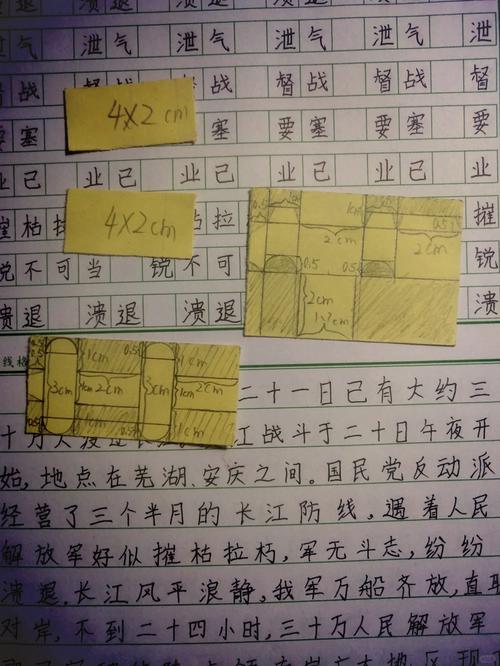 泄气 泄气 泄气 泄气 泄
战 战 督战 督战 督
4×2cm
要 塞 要塞 要塞 要
已 业已 业已 业已 业已 业
摧枯拉 枯拉 摧
4×2cm
锐不可当 锐不可 锐
溃退 溃退 溃退 溃
0.5 1cm 0.5
2cm 2cm
0.5 0.5
2cm
0.5 1cm 0.5 1cm
3cm 1cm 2cm 3cm 1cm 2cm
1cm 0.5 1cm
二十一日已有大约三
十万人 江战斗于二十日午夜开
始,地点在芜湖、安庆之间。国民党反动派
经营了三个半月的长江防线,遇着人民
解放军好似摧枯拉朽,军无斗志,纷纷
溃退。长江风平浪静,我军万船齐放,直取
对岸,不到二十四小时,三十万人民解放军